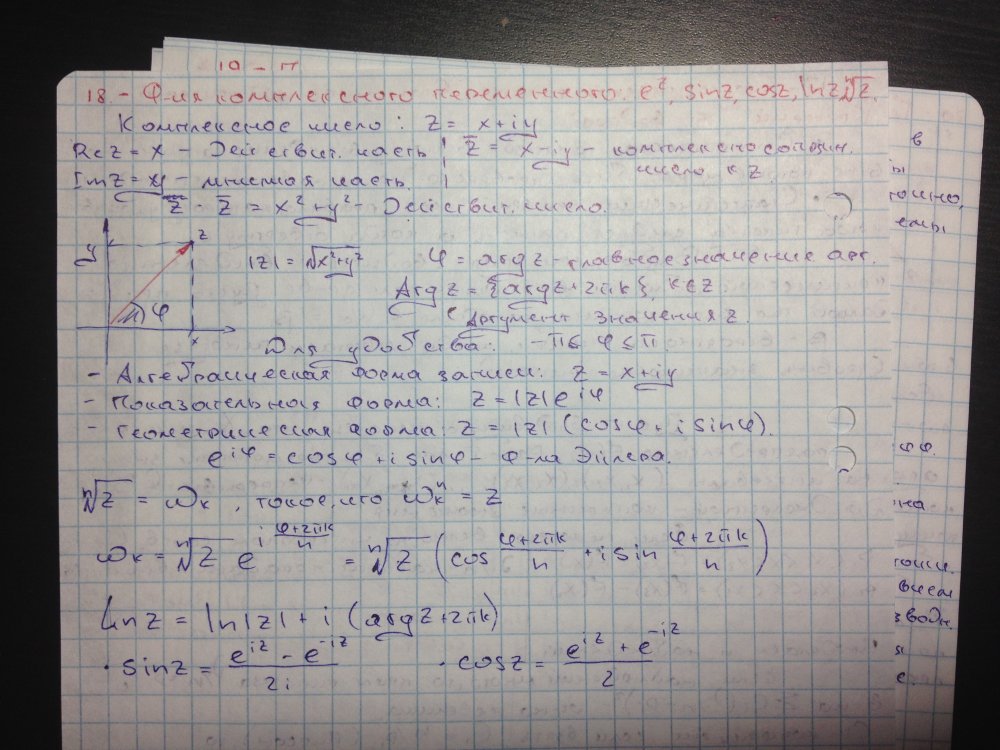 18. - Ф-ия комплексного переменного: e^z, sinz, cosz, lnz, ⁿ√z.
Комплексное число: z = x+iy
Re z = x - Действит. часть
z̅ = x-iy - комплексно сопряж. число к z.
Im z = y - мнимая часть.
z · z̅ = x²+y² - Действит. число.
y
z
x
φ
|z| = √x²+y²
φ = argz - главное значение арг.
Arg z = {argz+2πk}, k∈z.
Аргумент значения z.
Для удобства: -π ≤ φ ≤ π.
- Алгебраическая форма записи: z = x+iy
- Показательная форма: z = |z|e^iφ
- Геометрическая форма: z = |z| (cosφ + i sinφ).
e^iφ = cosφ + i sinφ - ф-ла Эйлера.
ⁿ√z = ωk, такое, что ωkⁿ = z
ωk = ⁿ√z e^(i (φ+2πk)/n) = ⁿ√z (cos (φ+2πk)/n + i sin (φ+2πk)/n)
Ln z = ln|z| + i (argz+2πk)
· sinz = (e^iz - e^-iz)/2i
· cosz = (e^iz + e^-iz)/2
в
емы